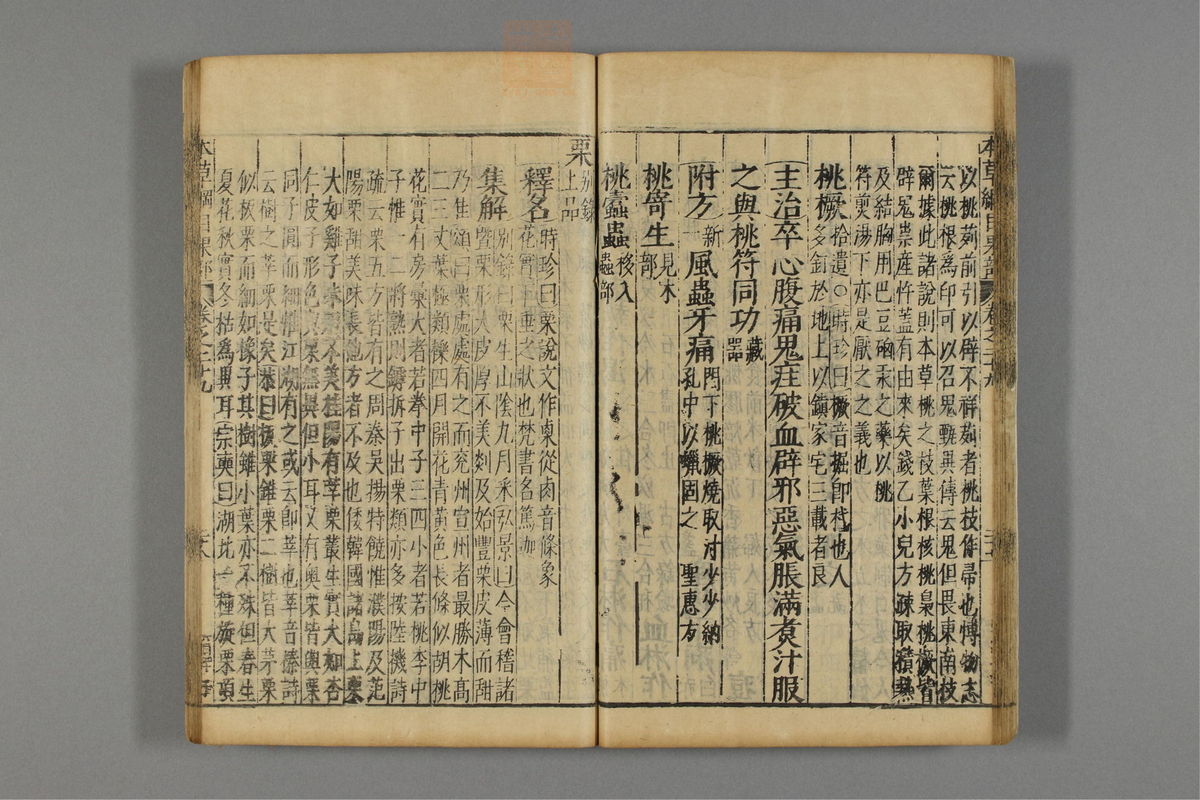 以桃茢前引以辟不祥茢者桃枝作帚也博物志
云桃根爲印可以召鬼甄異傳云鬼但畏東南枝
爾據此諸說則本草桃之枝葉根核桃梟桃橛皆
辟鬼祟産忤蓋有由來矣錢乙小兒方疎取積熱
及結胸用巴豆硇汞之藥以桃
符煎湯下亦是厭之之義也
桃橛拾遺○時珍曰橛音掘即杙也人
多釘於地上以鎮家宅三載者良
主治卒心腹痛鬼疰破血辟邪惡氣脹滿煮汁服
之與桃符同功藏器
附方新一風蟲牙痛門下桃橛燒取汁少少納
孔中以蠟固之 聖惠方
桃寄生見木部
桃蠹蟲移入蟲部
栗別錄上品
釋名時珍曰栗說文作㮚從𠧪音條象
花實下垂之狀也梵書名篤迦
集解別錄曰栗生山陰九月采弘景曰今會稽諸
暨栗形大皮厚不美剡及始豐栗皮薄而甜
乃佳頌曰栗處處有之而兖州宣州者最勝木高
二三丈葉極類櫟四月開花青黄色長條似胡桃
花實有房彙大者若拳中子三四小者若桃李中
子惟一二將熟則罅拆子出栗類亦多按陸機詩
疏云栗五方皆有之周秦吳揚特饒惟濮陽及范
陽栗甜美味長他方者不及也倭韓國諸島上栗
大如雞子味短不美桂陽有莘栗叢生實大如杏
仁皮子形色與栗無異但小耳又有奥栗皆與栗
同子圓而細惟江湖有之或云即莘也莘音榛詩
云樹之莘栗是矣恭曰板栗錐栗二樹皆大茅栗
似板栗而細如橡子其樹雖小葉亦不殊但春生
夏花秋實冬枯爲異耳宗奭曰湖北一種旋栗頂
本草綱目果部 卷之二十九